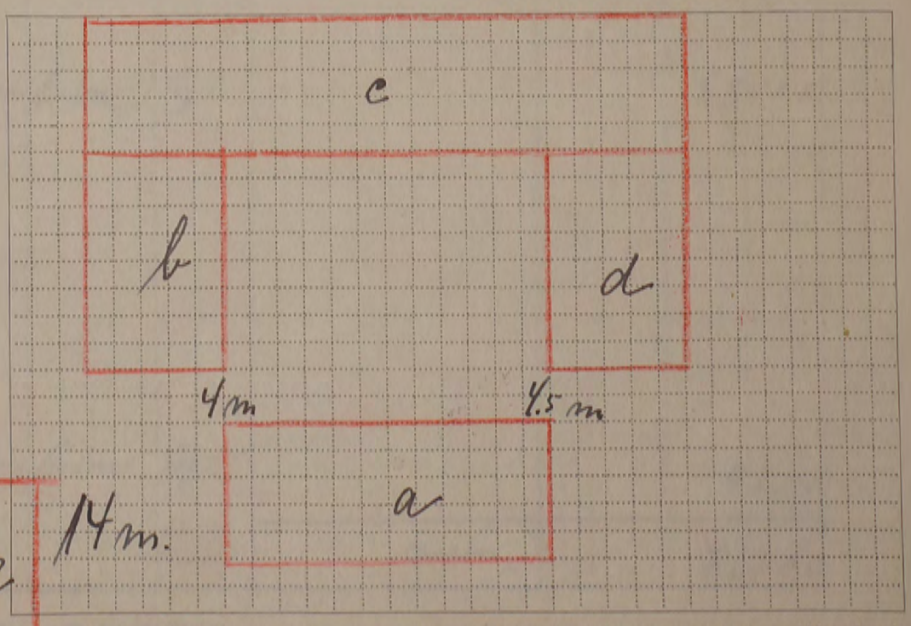 c
b
d
4 m
4.5 m
a
14 m.